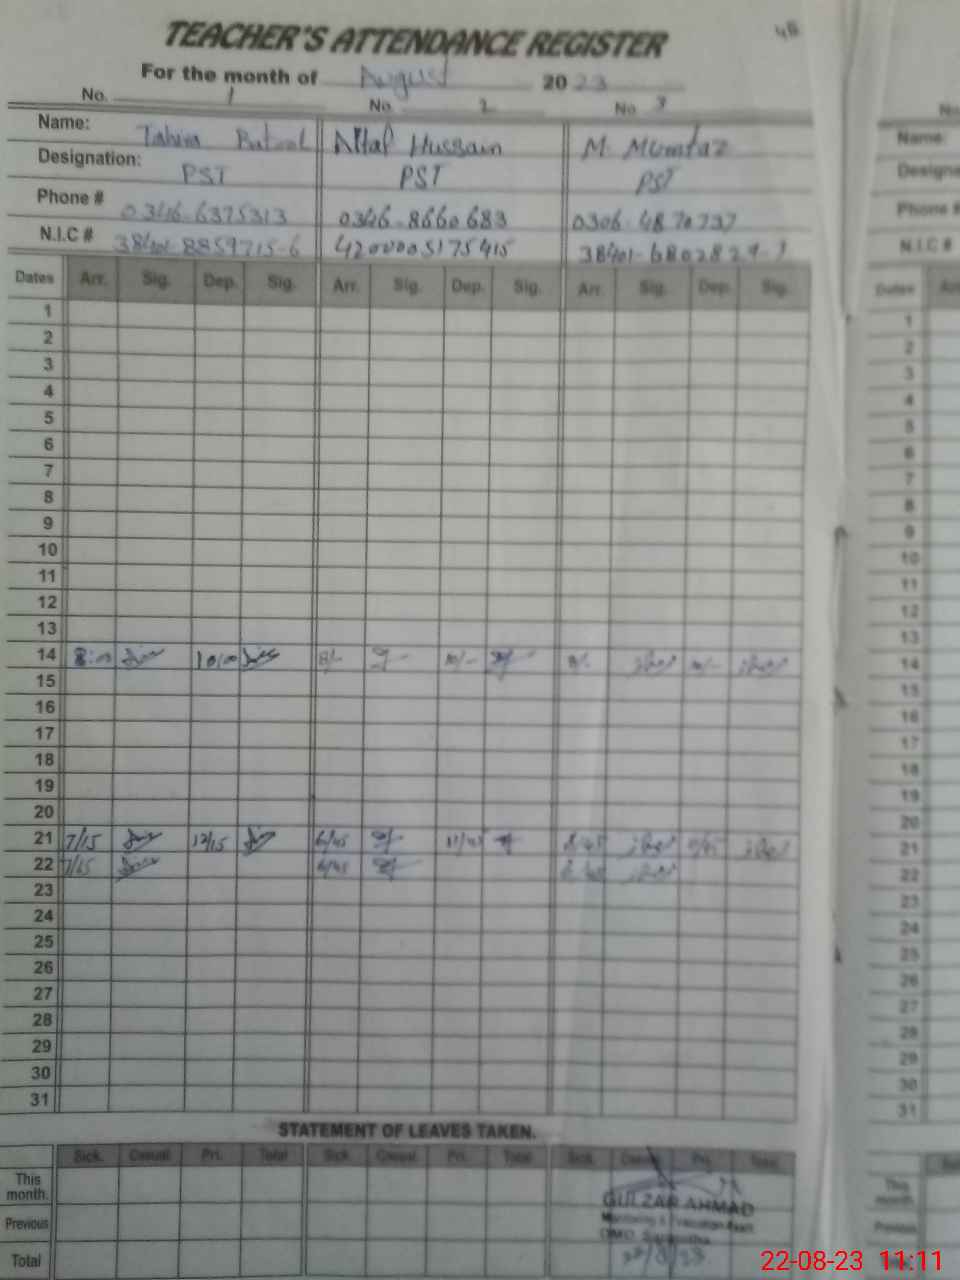 48
TEACHER'S ATTENDANCE REGISTER
For the month of August 2023
No. 1 No. 2 No. 3
Name: Tahira Batool Altaf Hussain M. Mumtaz
Designation: PST PST PST
Phone # 0346-6375313 0346-8660683 0306-4870737
N.I.C # 38401-8859715-6 4200005175415 38401-6802829-
Dates Arr. Sig. Dep. Sig. Arr. Sig. Dep. Sig. Arr. Sig. Dep. Sig.
1
2
3
4
5
6
7
8
9
10
11
12
13
14 8:00 10:00 8/- 10/- 8/- 10/-
15
16
17
18
19
20
21 7/15 12/15 6/45 11/45
22 7/15 6/45
23
24
25
26
27
28
29
30
31
STATEMENT OF LEAVES TAKEN.
Sick. Casual. Pri. Total Sick. Casual. Pri. Total Sick. Casual. Pri. Total.
This month.
Previous
Total
GULZAR AHMAD
Monitoring & Evaluation Asstt.
DMO, Sargodha
22/8/23
No.
Name:
Phone #
N.I.C #
Dates
1
2
3
4
5
6
7
8
9
10
11
12
13
14
15
16
17
18
19
20
21
22
23
24
25
26
27
28
29
30
31
This month.
Previous
22-08-23 11:11